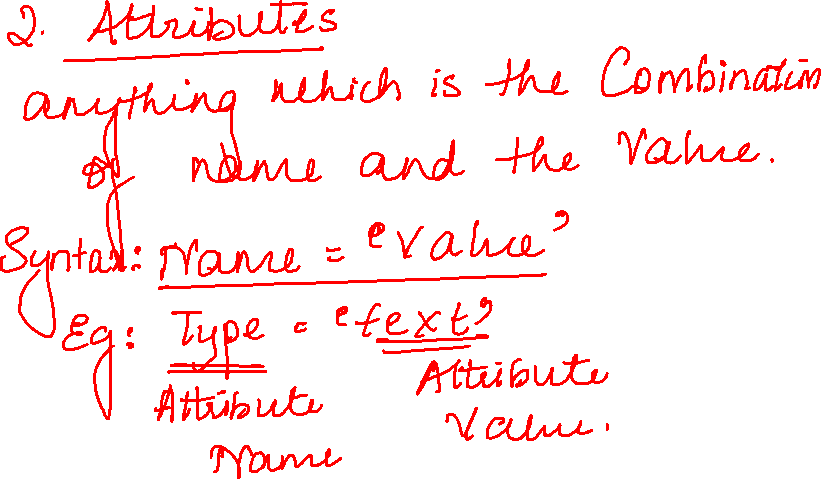 2. Attributes
anything which is the Combination
of name and the Value.
Syntax: Name = 'Value'
Eg: Type = 'text'
Attribute Name
Attribute Value.